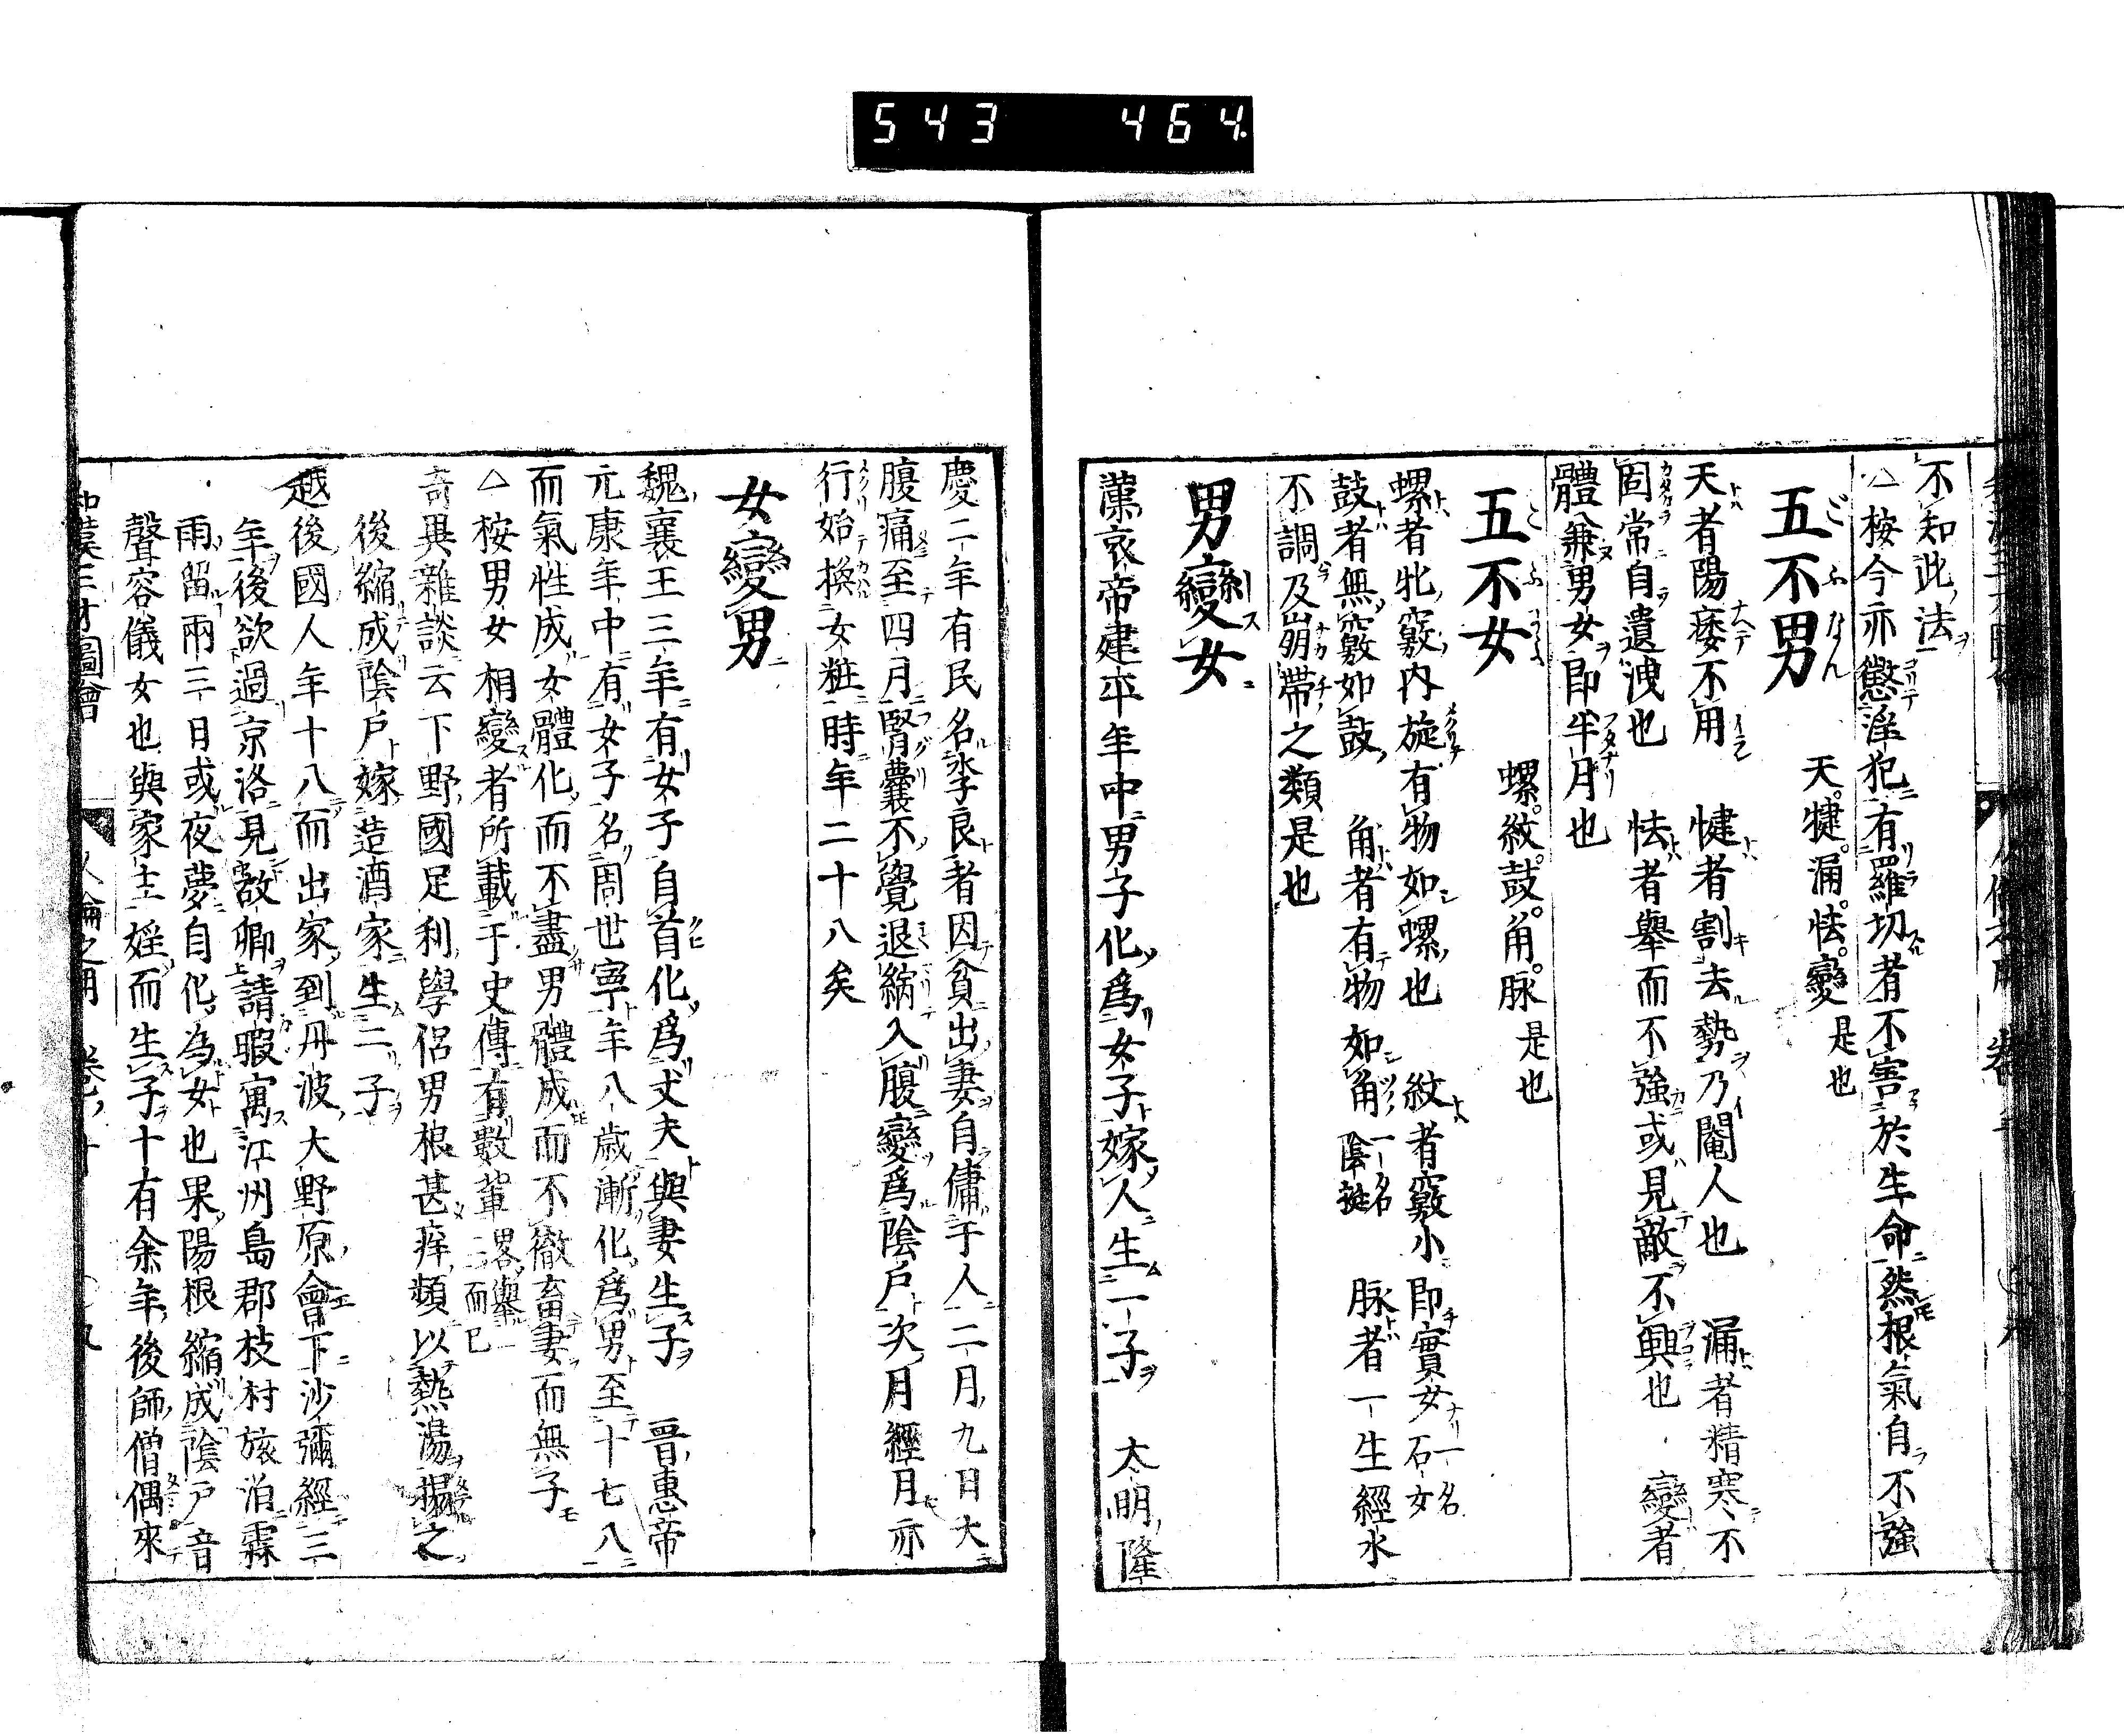 543 464
不知此法
△桉今亦懲淫犯有羅切者不害於生命然根氣自不強
五不男 天。犍。漏。怯。變 是也
天者陽痿不用 犍者割去勢乃閹人也 漏者精寒不
固常自遺洩也 怯者舉而不強或見敵不興也 變者
體兼男女即半月也
五不女 螺。紋。鼓。角。脉 是也
螺者牝竅内旋有物如螺也 紋者竅小即實女 一名石女
鼓者無竅如鼓 角者有物如角 一名陰挺 脉者一生經水
不調及崩帶之類是也
男變女
漢哀帝建平年中男子化爲女子嫁人生一子 大明隆
慶二年有民名李良者因貧出妻自傭于人二月九日大
腹痛至四月腎囊不覺退縮入腹變爲陰戶次月經月亦
行始換女粧時年二十八矣
女變男
魏襄王三年有女子自首化爲丈夫與妻生子 晋惠帝
元康年中有女子名周世寧年八歳漸化爲男至十七八
而氣性成女體化而不盡男體成而不徹畜妻而無子
△桉男女相變者所載于史傳有數輩畧舉一二而已
奇異雜談云下野國足利學侶男根甚痒頻以熱湯㨪之
後縮成陰戶嫁造酒家生二子
越後國人年十八而出家到丹波大野原會下沙彌經三
年後欲過京洛見故郷請暇寓江州島郡枝村旅泊霖
雨留兩三日或夜夢自化為女也果陽根縮成陰戸音
聲容儀女也與家主婬而生子十有余年後師僧偶來
和漢三才圖會 人倫之用 卷十